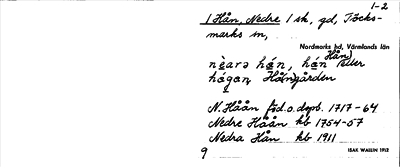 1-2
1 Hån, Nedre 1 sk, gd, Töcks-
marks sn,
Nordmarks hd, Värmlands län
Hån
nèara hán, hán eller
hågan, Hångården
N. Håån föd. o. dopb. 1717-64
Nedre Håån kb 1754-57
Nedra Hån kb 1911
9
ISAK WALLIN 1912